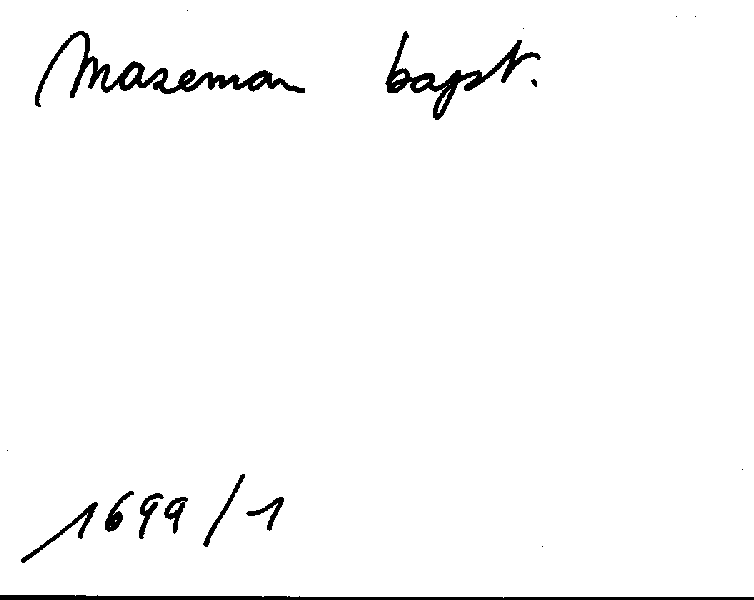 Maseman bapt.
1699/1